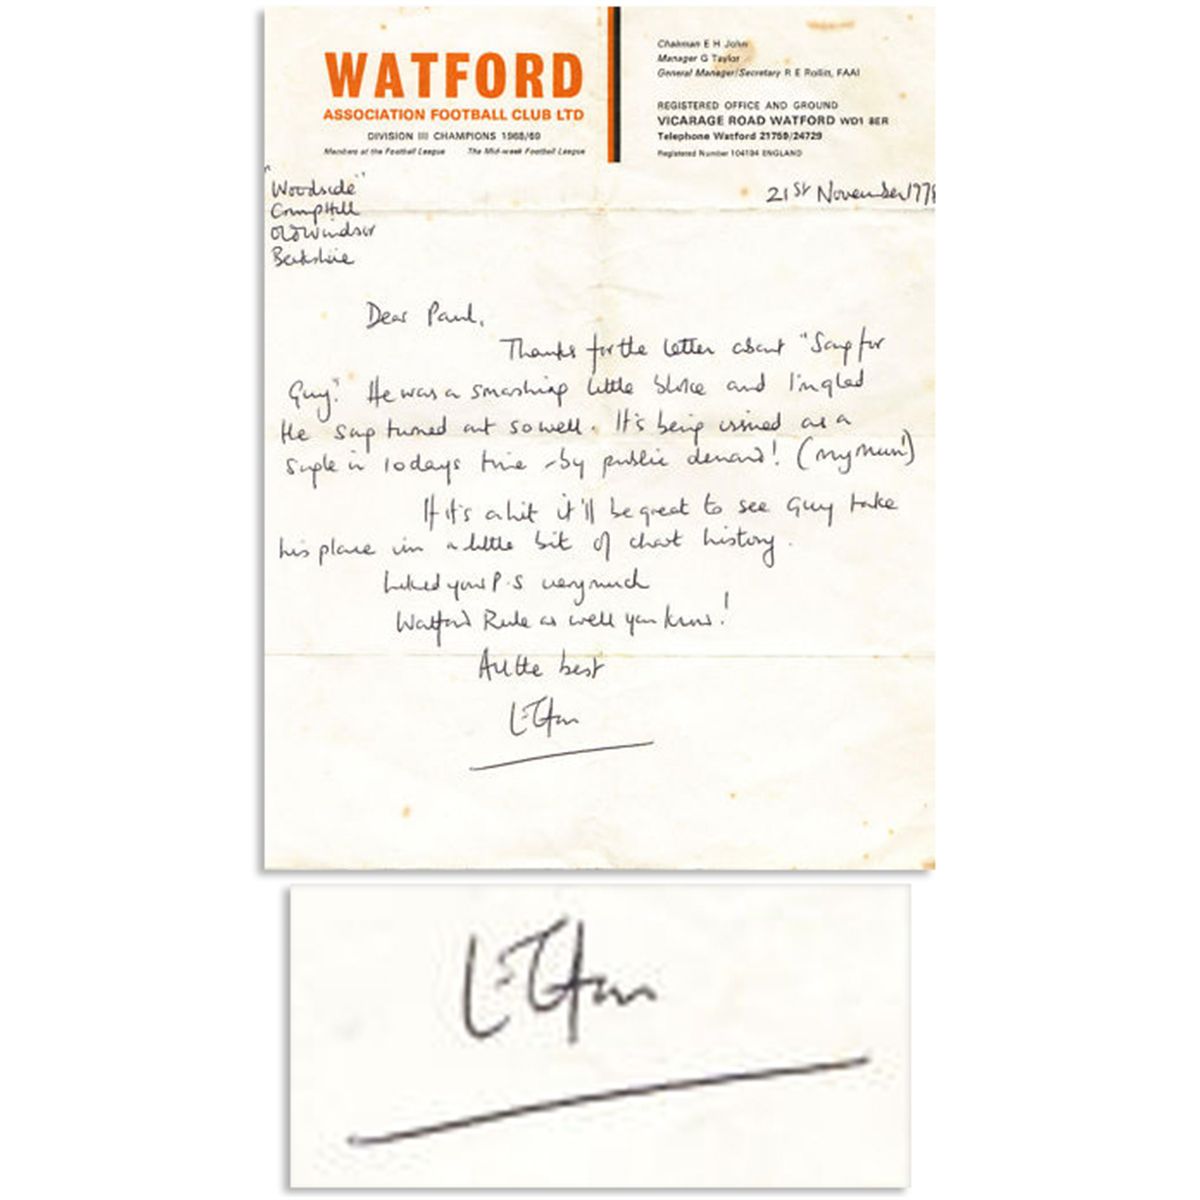 WATFORD
ASSOCIATION FOOTBALL CLUB LTD
DIVISION III CHAMPIONS 1968/69
Members of the Football League The Mid-week Football League
Chairman E H John
Manager G Taylor
General Manager/Secretary R E Rollitt, FAAI
REGISTERED OFFICE AND GROUND
VICARAGE ROAD WATFORD WD1 8ER
Telephone Watford 21759/24729
Registered Number 104194 ENGLAND
"Woodside"
Crimp Hill
Old Windsor
Berkshire
21st November 1978
Dear Paul,
Thanks for the letter about "Song for
Guy". He was a smashing little bloke and I'm glad
the song turned out so well. It's being issued as a
single in 10 days time - by public demand! (my mum!)
If it's a hit it'll be great to see Guy take
his place in a little bit of chart history.
Liked your P.S very much
Watford Rule as well you know!
All the best
Elton
Elton